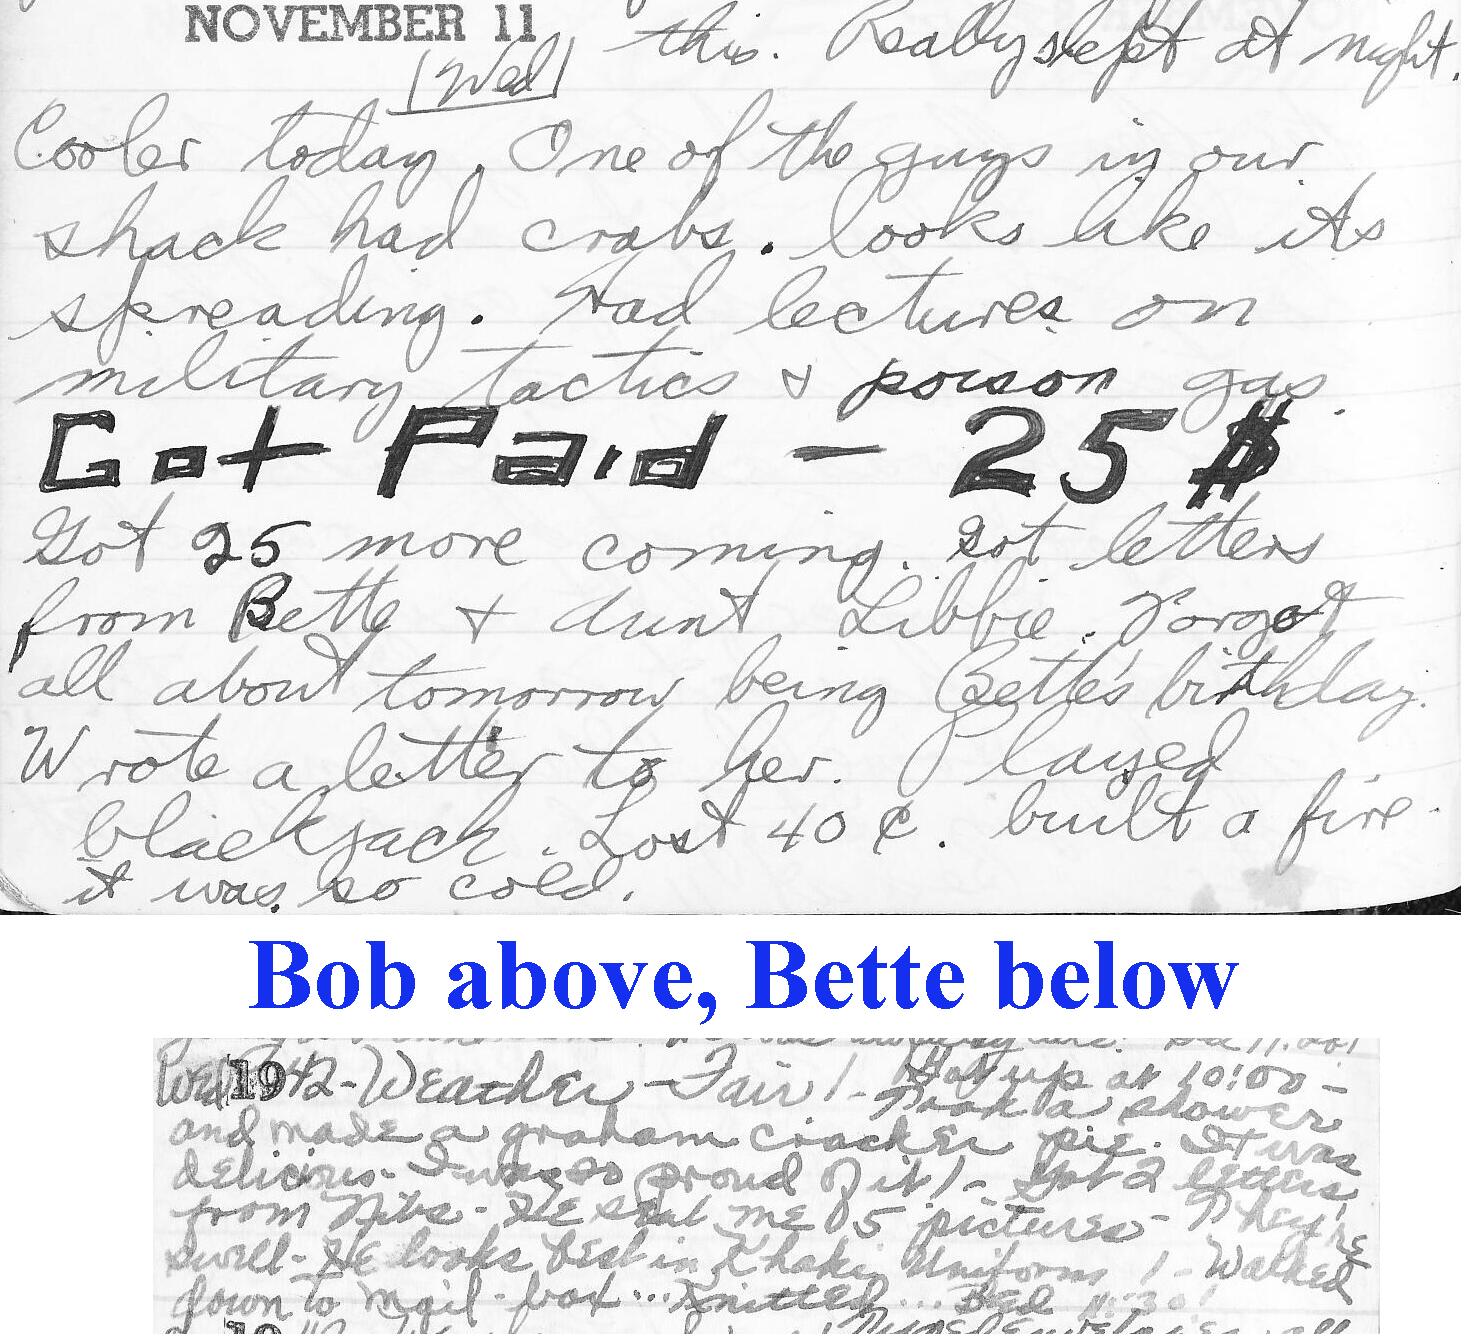 NOVEMBER 11
|Wed| this. Really slept at night.
Cooler today. One of the guys in our
shack had crabs. looks like its
spreading. Had lectures on
military tactics & poison gas.
Got Paid - 25 $
Got 25 more coming. Got letters
from Bette + Aunt Libbie. Forgot
all about tomorrow being Bette's birthday.
Wrote a letter to her. Played
blackjack. Lost 40 ¢. built a fire -
it was so cold.
Bob above, Bette below
Wed 1942 - Weather - Fair! - Got up at 10:00 -
Took a shower
and made a graham cracker pie. It was
delicious - I was so proud of it! - Got 2 letters
from Nibs - He sent me 5 pictures - They're
swell - He looks best in Khaki Uniforms! - Walked
down to mail-box... Knitted... Bed 11:30!
19